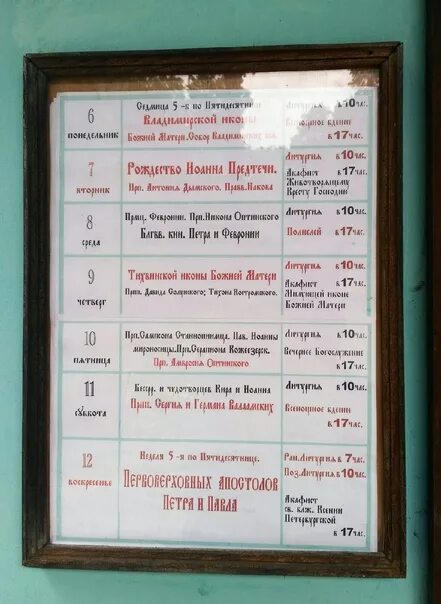 6
понедельник
Седмица 5-я по Пятидесятнице
Владимирской иконы
Божией Матери. Собор Владимирских свв.
Литургия в 10 час.
Всенощное бдение
в 17 час.
7
вторник
Рождество Иоанна Предтечи.
Прп. Антония Дымского. Правв. Иакова
Литургия в 10 час.
Акафист в 17 час.
Животворящему
Кресту Господню
8
среда
Прмц. Февронии. Прп. Никона Оптинского
Блгвв. кнн. Петра и Февронии
Литургия в 10 час.
Полиелей в 17 час.
9
четверг
Тихвинской иконы Божией Матери
Прпп. Давида Солунского; Тихона Костромского.
Литургия в 10 час.
Акафист в 17 час.
иконе
Божией Матери
10
пятница
Прп. Сампсона Странноприимца. Прав. Иоанны
мироносицы. Прп. Серапиона Кожеезерск.
Прп. Амвросия Оптинского
Литургия в 10 час.
Вечернее Богослужение
в 17 час.
11
суббота
Бессрр. и чудотворцев Кира и Иоанна
Прпп. Сергия и Германа Валаамских
Литургия в 10 час.
Всенощное бдение
в 17 час.
12
воскресенье
Неделя 5-я по Пятидесятнице.
Первоверховных апостолов
Петра и Павла
Ран. Литургия в 7 час.
Поз. Литургия в 10 час.
Акафист
св. блж. Ксении
Петербургской
в 17 час.